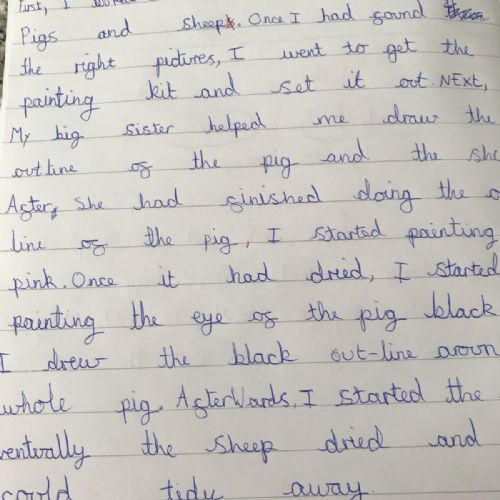 First, I
Pigs and sheep. Once I had found
the right pictures, I went to get the
painting kit and set it out. NExt,
My big sister helped me draw the
outline of the pig and the she
After, she had finished doing the o
line of the pig, I started painting
pink. Once it had dried, I started
painting the eye of the pig black
I drew the black out-line aroun
whole pig. AfterWards, I started the
ventually the sheep dried and
could tidy away.